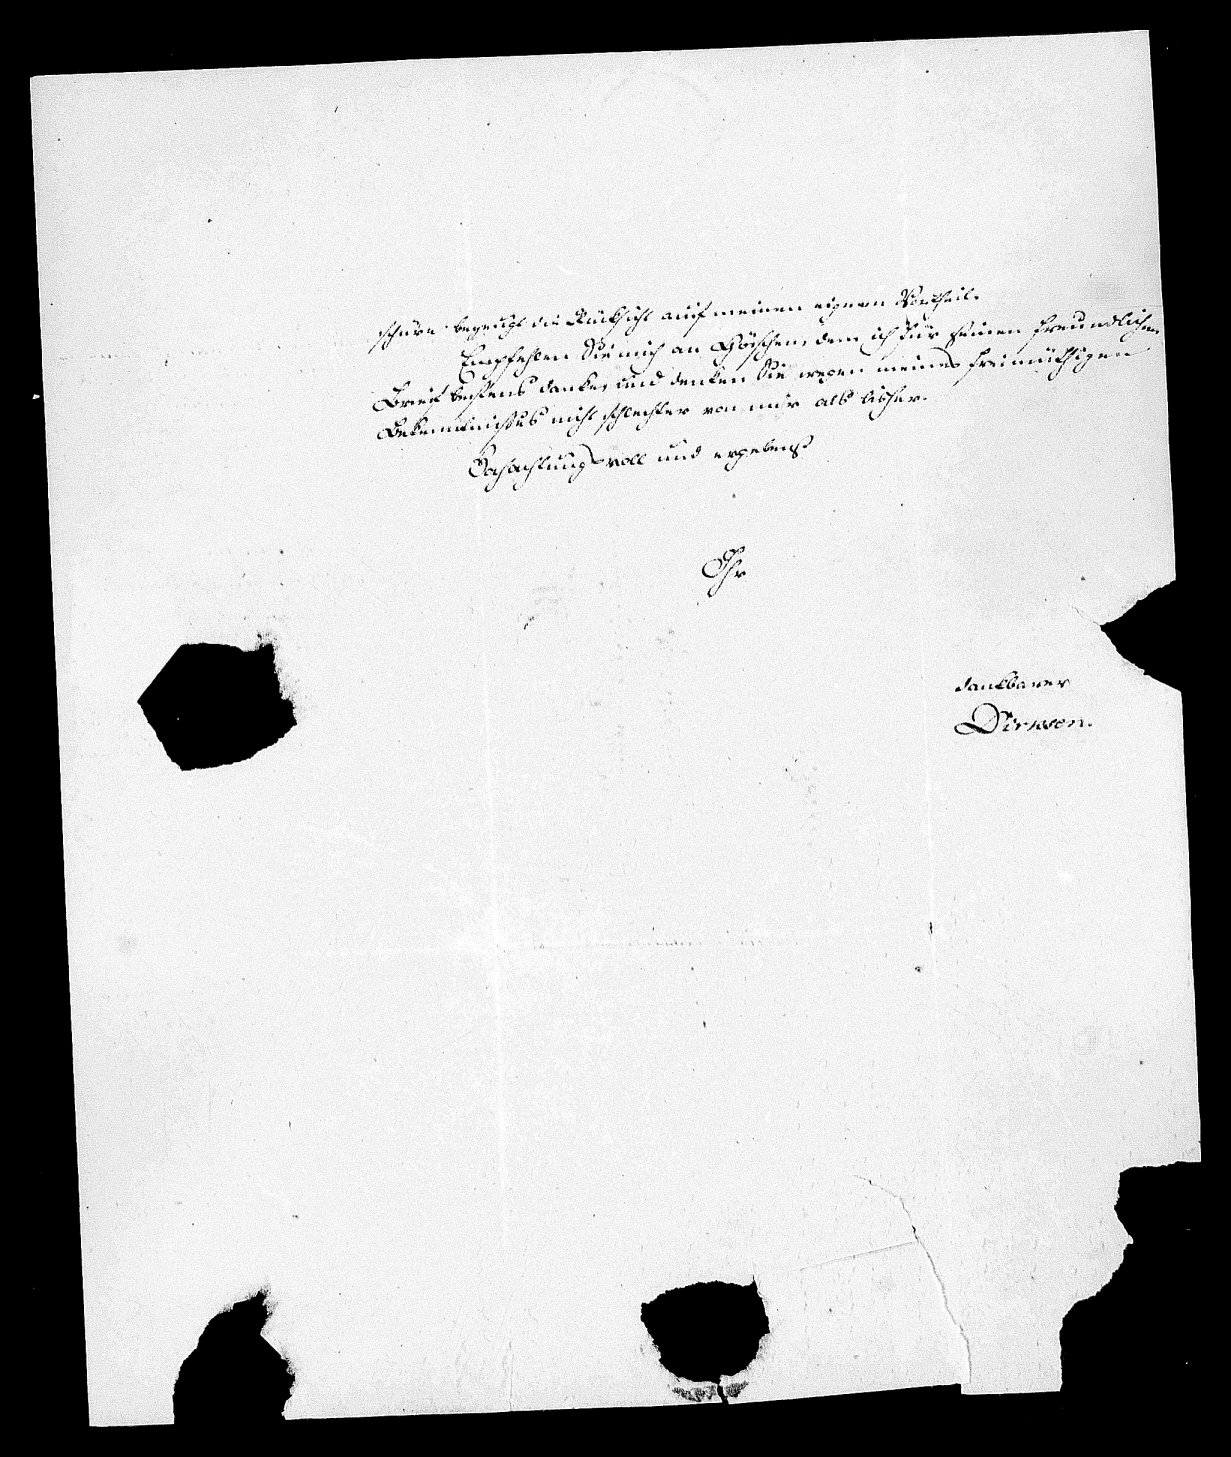 schüre bezeugt die Rücksicht auf meinen eignen Vortheil.
Empfehlen Sie mich an Göschen, dem ich für seinen freundlichen
Brief bestens danke, und denken Sie wegen meines freimüthigen
Bekenntnisses nicht schlechter von mir als bisher.
Hochachtungsvoll und ergebenst
Ihr
dankbarer
Dirksen.